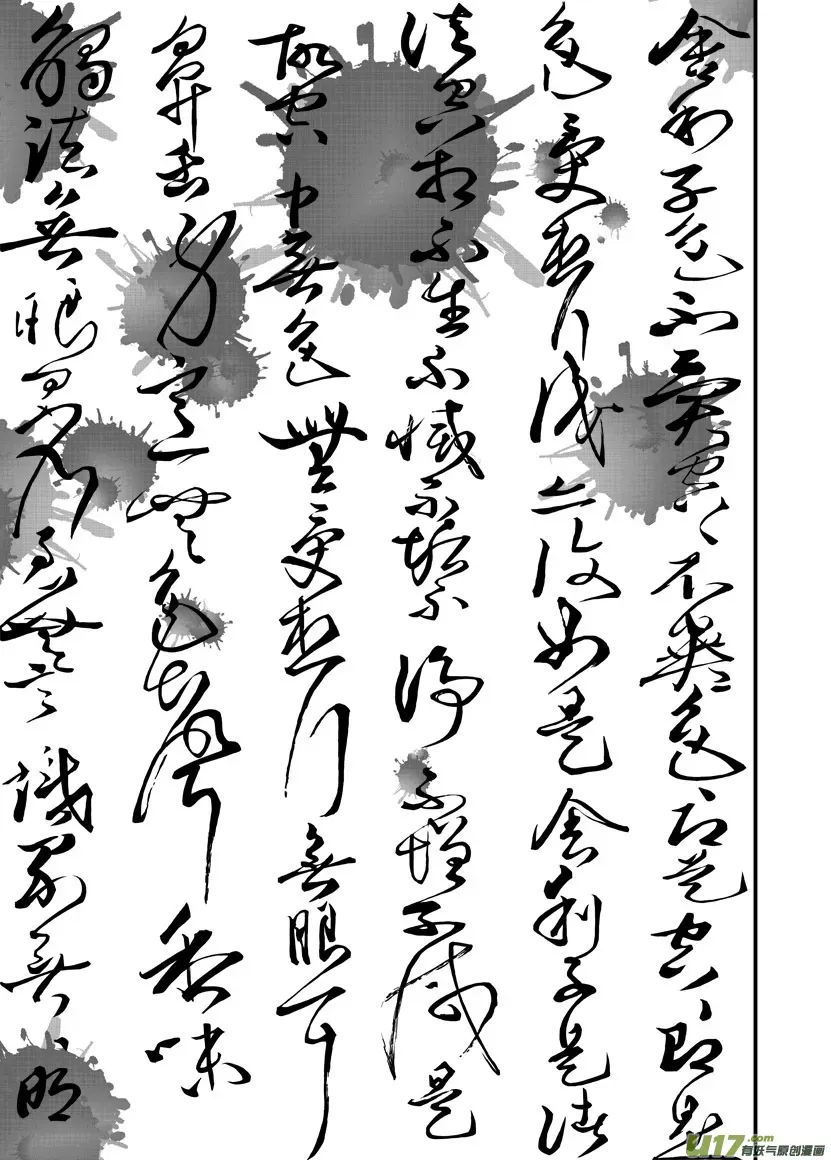 舍利子色不異空々不異色々即是空々即是
色受想行識亦復如是舍利子是諸
法空相不生不滅不垢不淨不增不減是
故空中無色無受想行無眼耳
鼻舌身意無色聲香味
觸法無眼界乃至無意識界無々明
U17.com
有妖气原创漫画